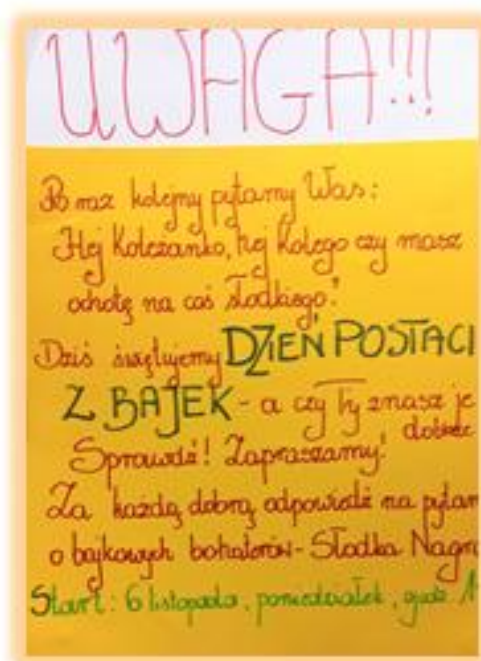 UWAGA!!!
Po raz kolejny pytamy Was:
Hej Koleżanko, hej Kolego czy masz
ochotę na coś słodkiego?
Dziś świętujemy DZIEŃ POSTACI
Z BAJEK - a czy Ty znasz je
dobrze
Sprawdź! Zapraszamy!
Za każdą dobrą odpowiedź na pytan
o bajkowych bohaterów - Słodka Nagro
Start: 6 listopada, poniedziałek, godz. 1